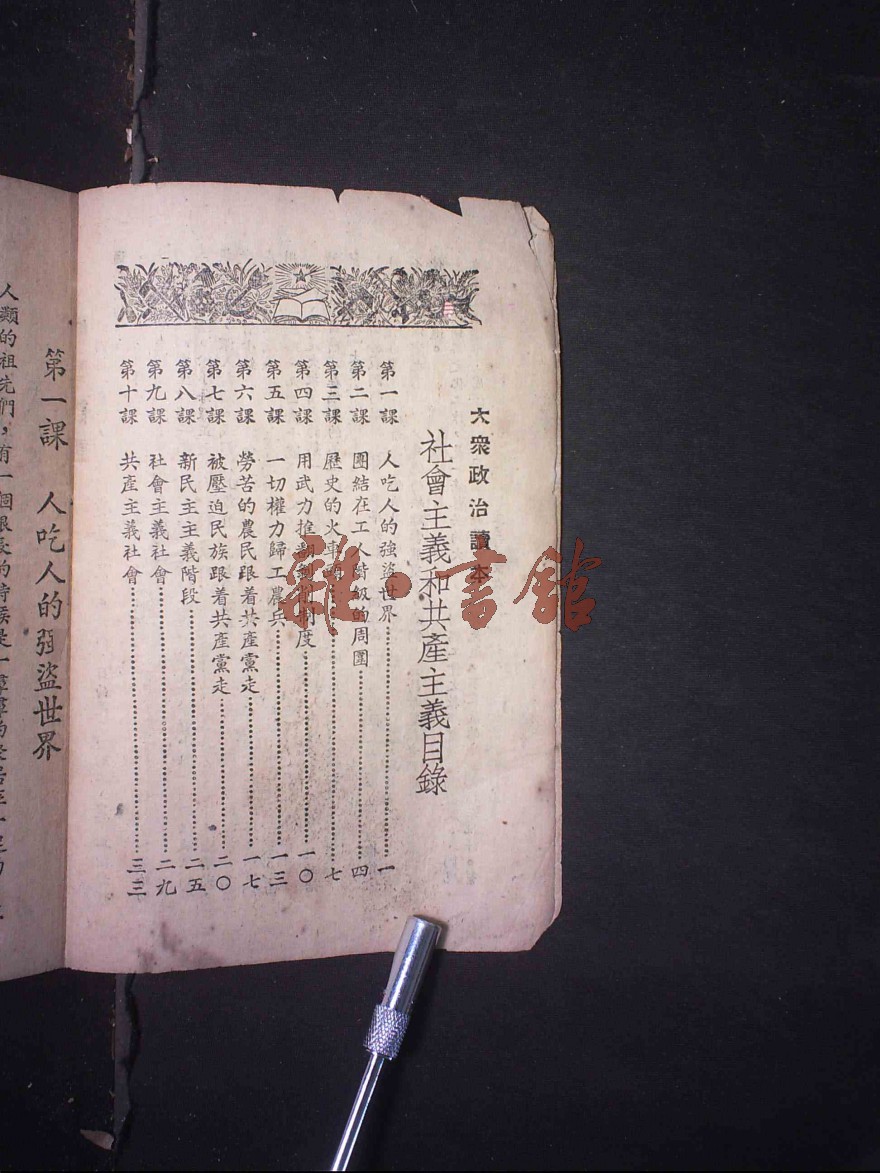 大衆政治讀本
社會主義和共產主義目錄
第一課 人吃人的強盜世界 一
第二課 團結在工人階級的周圍 四
第三課 歷史的火車 七
第四課 用武力推翻剝削制度 一〇
第五課 一切權力歸工農兵 一三
第六課 勞苦的農民跟着共產黨走 一七
第七課 被壓迫民族跟着共產黨走 二〇
第八課 新民主主義階段 二五
第九課 社會主義社會 二九
第十課 共產主義社會 三三
雜·書館
第一課 人吃人的强盜世界
人類的祖先們，有一個很長的時候是一羣羣的